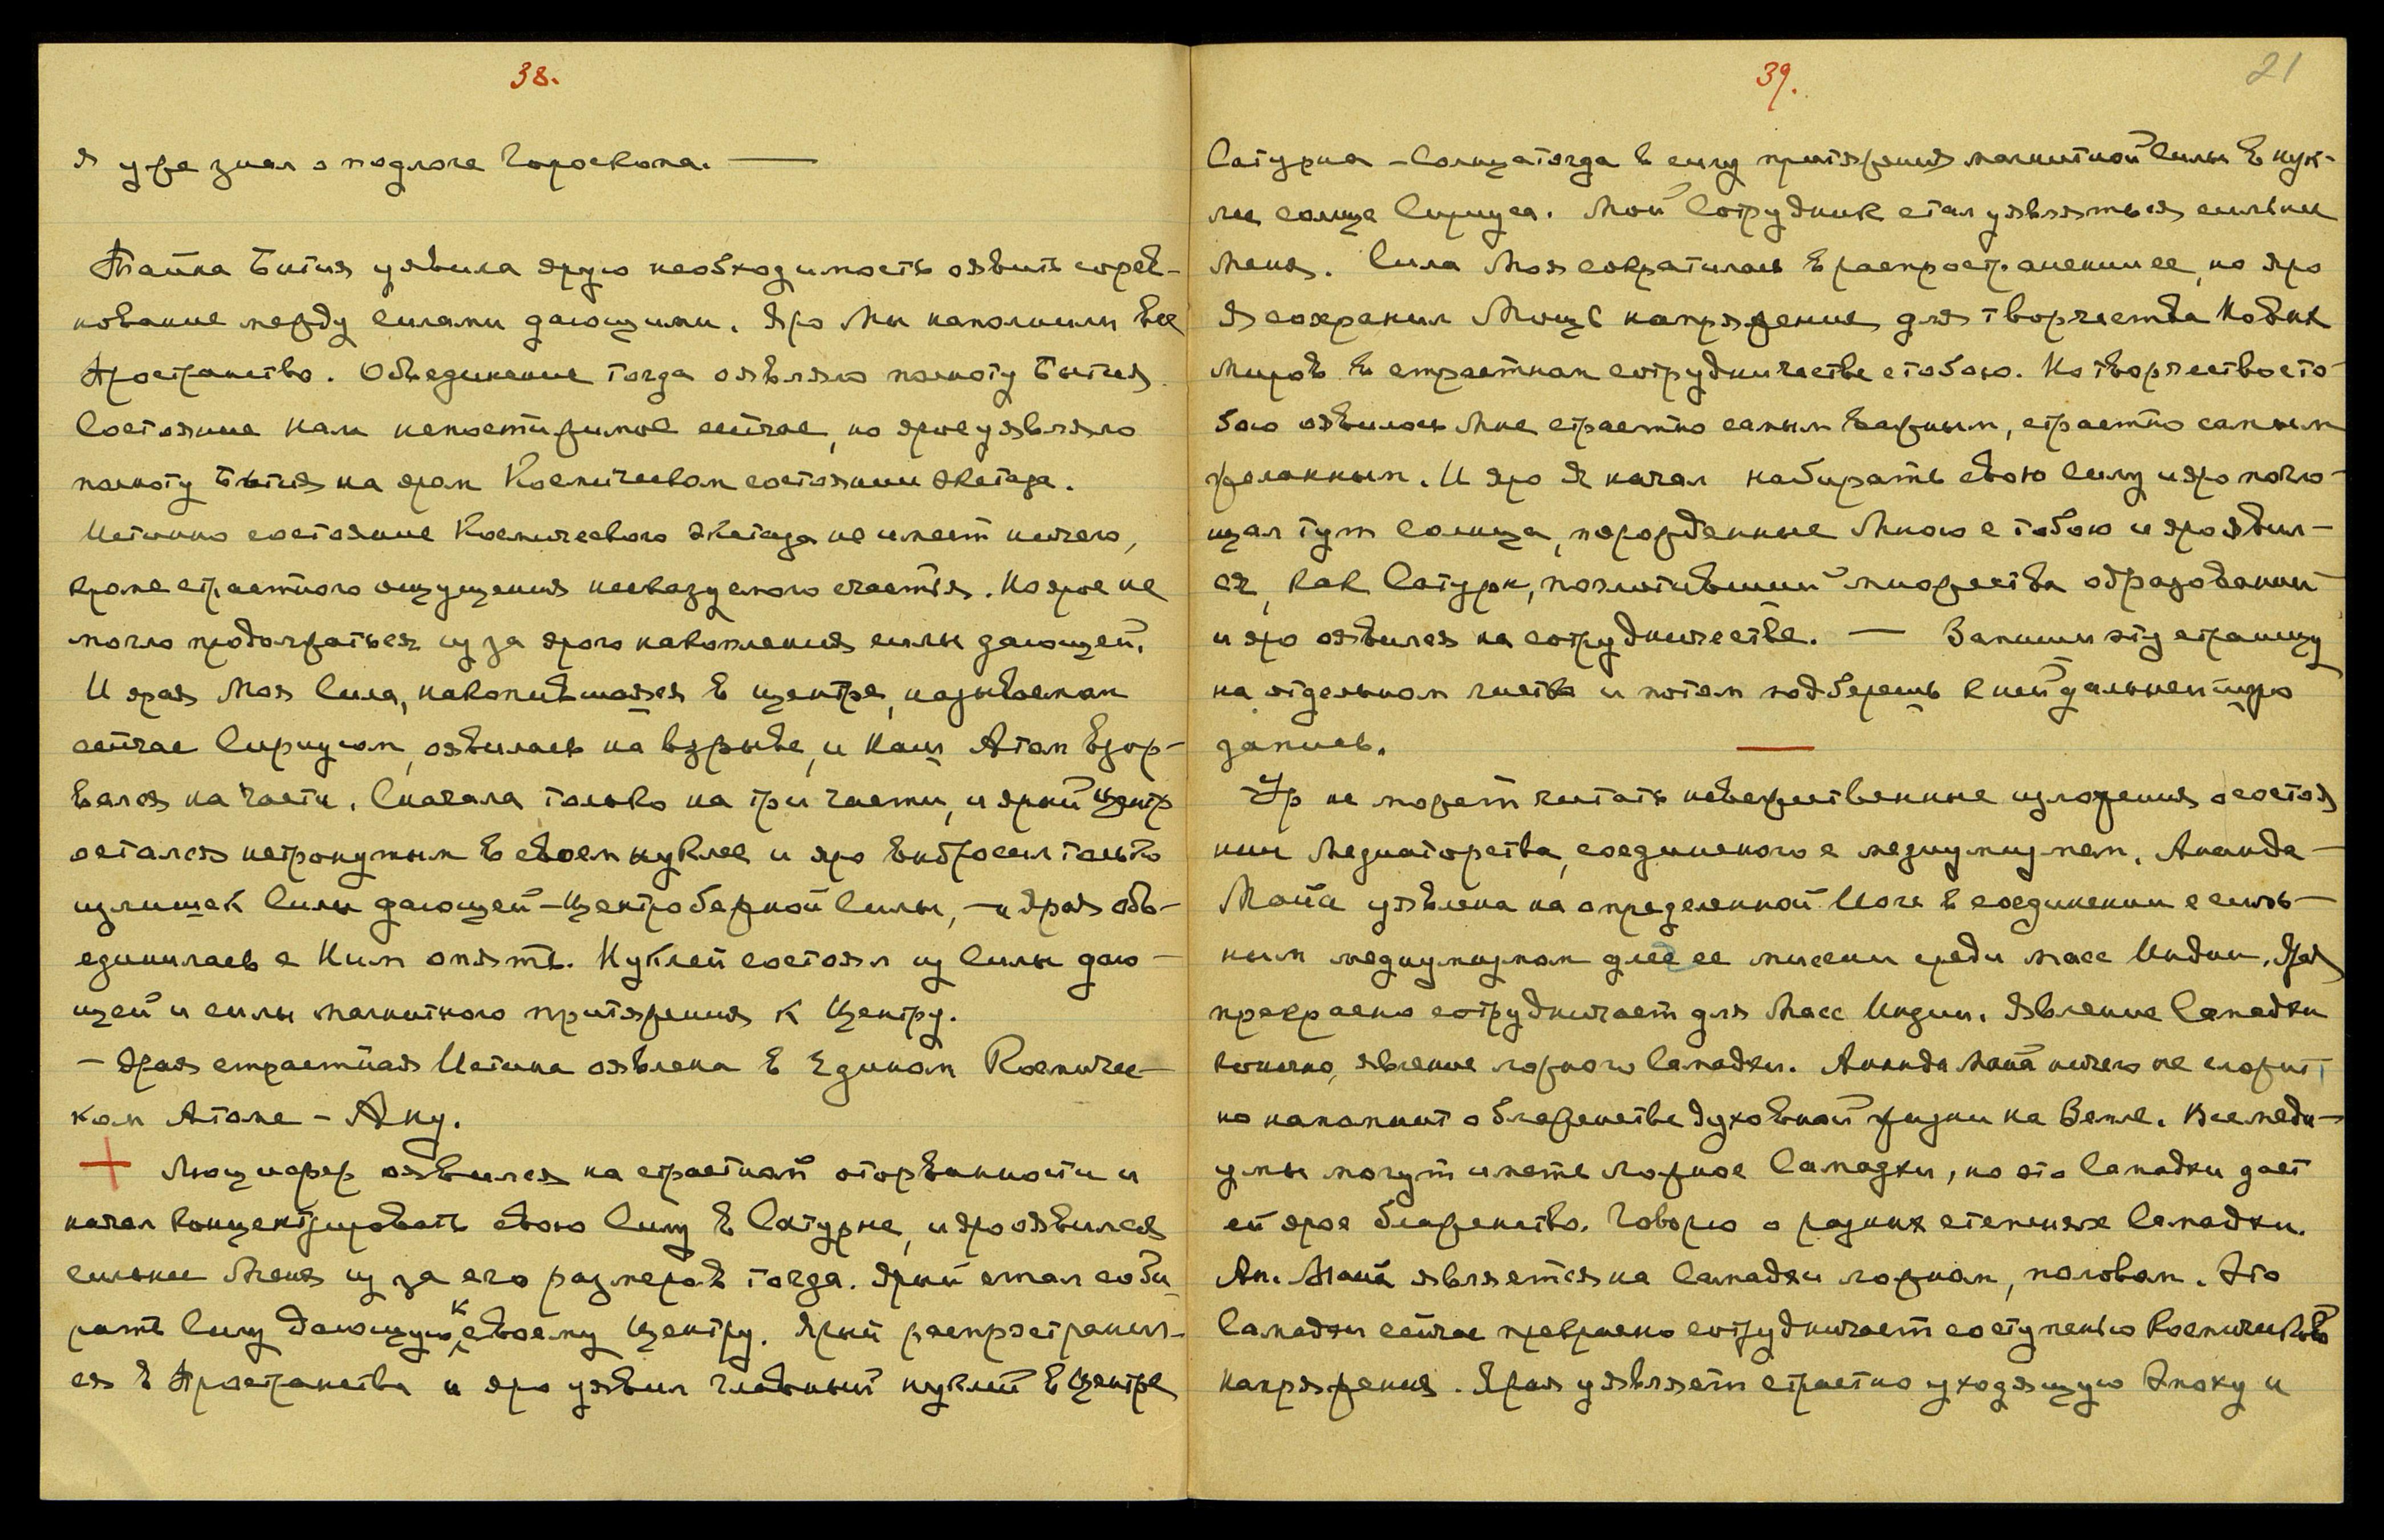 38.
я уже знал о подлоге Гороскопа. —
Тайна Бытия уявила ярую необходимость оявить сорев-
нование между силами дающими. Яро Мы наполнили все
Пространство. Объединение тогда оявляло полноту Бытия.
Состояние нам непостижимое сейчас, но ярое уявляло
полноту Бытия на яром Космическом состоянии экстаза.
Истинно состояние Космического экстаза не имеет ничего,
кроме страстного ощущения несказуемого счастья. Но ярое не
могло продолжаться из за ярого накопления силы дающей.
И ярая Моя Сила, накопившаяся в центре, называемом
сейчас Сириусом, оявилась на взрыве, и Наш Атом взор-
вался на части. Сначала только на три части, и ярый центр
остался нетронутым в своем нуклее и яро выбросил только
излишек Силы дающей - Центробежной Силы, — и ярая объ-
единилась с Ним опять. Нуклей состоял из Силы даю-
щей и силы магнитного притяжения к Центру.
— Ярая страстная Истина оявлена в Едином Космичес-
ком Атоме - Ану.
+ Люцифер оявился на страстной оторванности и
начал концентрировать свою Силу в Сатурне, и яро оявился
сильнее Меня из за его размеров тогда. Ярый стал соби-
рать Силу дающую к своему Центру. Ярый распространил-
ся в Пространстве и яро уявил главный нуклей в Центре
39.
21
Сатурна - Солнца тогда в силу притяжения магнитной Силы в нук-
лее солнца Сириуса. Мой Сотрудник стал уявляться сильнее
Меня. Сила Моя сократилась в распространении ее, но яро
Я сохранил Мощь напряжения для творчества Новых
Миров в страстном сотрудничестве с тобою. Но творчество с то-
бою оявилось Мне страстно самым важным, страстно самым
желанным. И яро Я начал набирать свою Силу и яро погло-
щал тут солнца, порожденные Мною с тобою и яро явил-
ся, как Сатурн, поглотивший множества образований
и яро оявился на сотрудничестве. — Запиши эту страницу
на отдельном листе и потом подберешь к ней дальнейшую
запись.
Ур не может читать невежественные изложения о состоя
нии Медиаторства, соединенного с медиумизмом. Ананда -
Мойи уявлена на определенной Йоге в соединении с силь-
ным медиумизмом для ее миссии среди масс Индии. Ярая
прекрасно сотрудничает для Масс Индии. Явление Самадхи
конечно, явление ложного Самадхи. Ананда Мойи ничего не сложит,
но напомнит о блаженстве духовной жизни на Земле. Все меди-
умы могут иметь ложное Самадхи, но это Самадхи дает
ей ярое блаженство. Говорю о разных степенях Самадхи.
Ан. Мойи является на Самадхи ложном, половом. Это
Самадхи сейчас прекрасно сотрудничает со ступенью Космического
напряжения. Ярая уявляет страстно уходящую Эпоху и